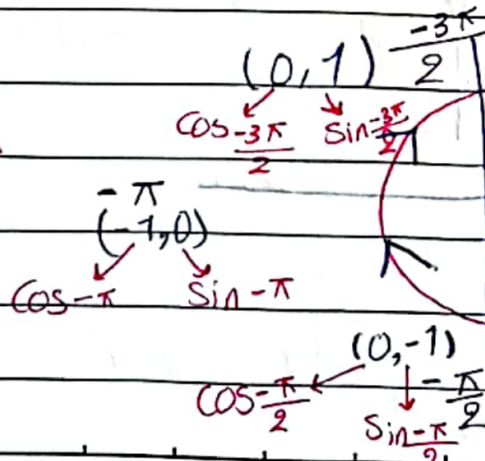 (0,1) -3π/2
cos -3π/2 sin -3π/2
-π
(-1,0)
cos -π sin -π
(0,-1)
cos -π/2 -π/2
sin -π/2